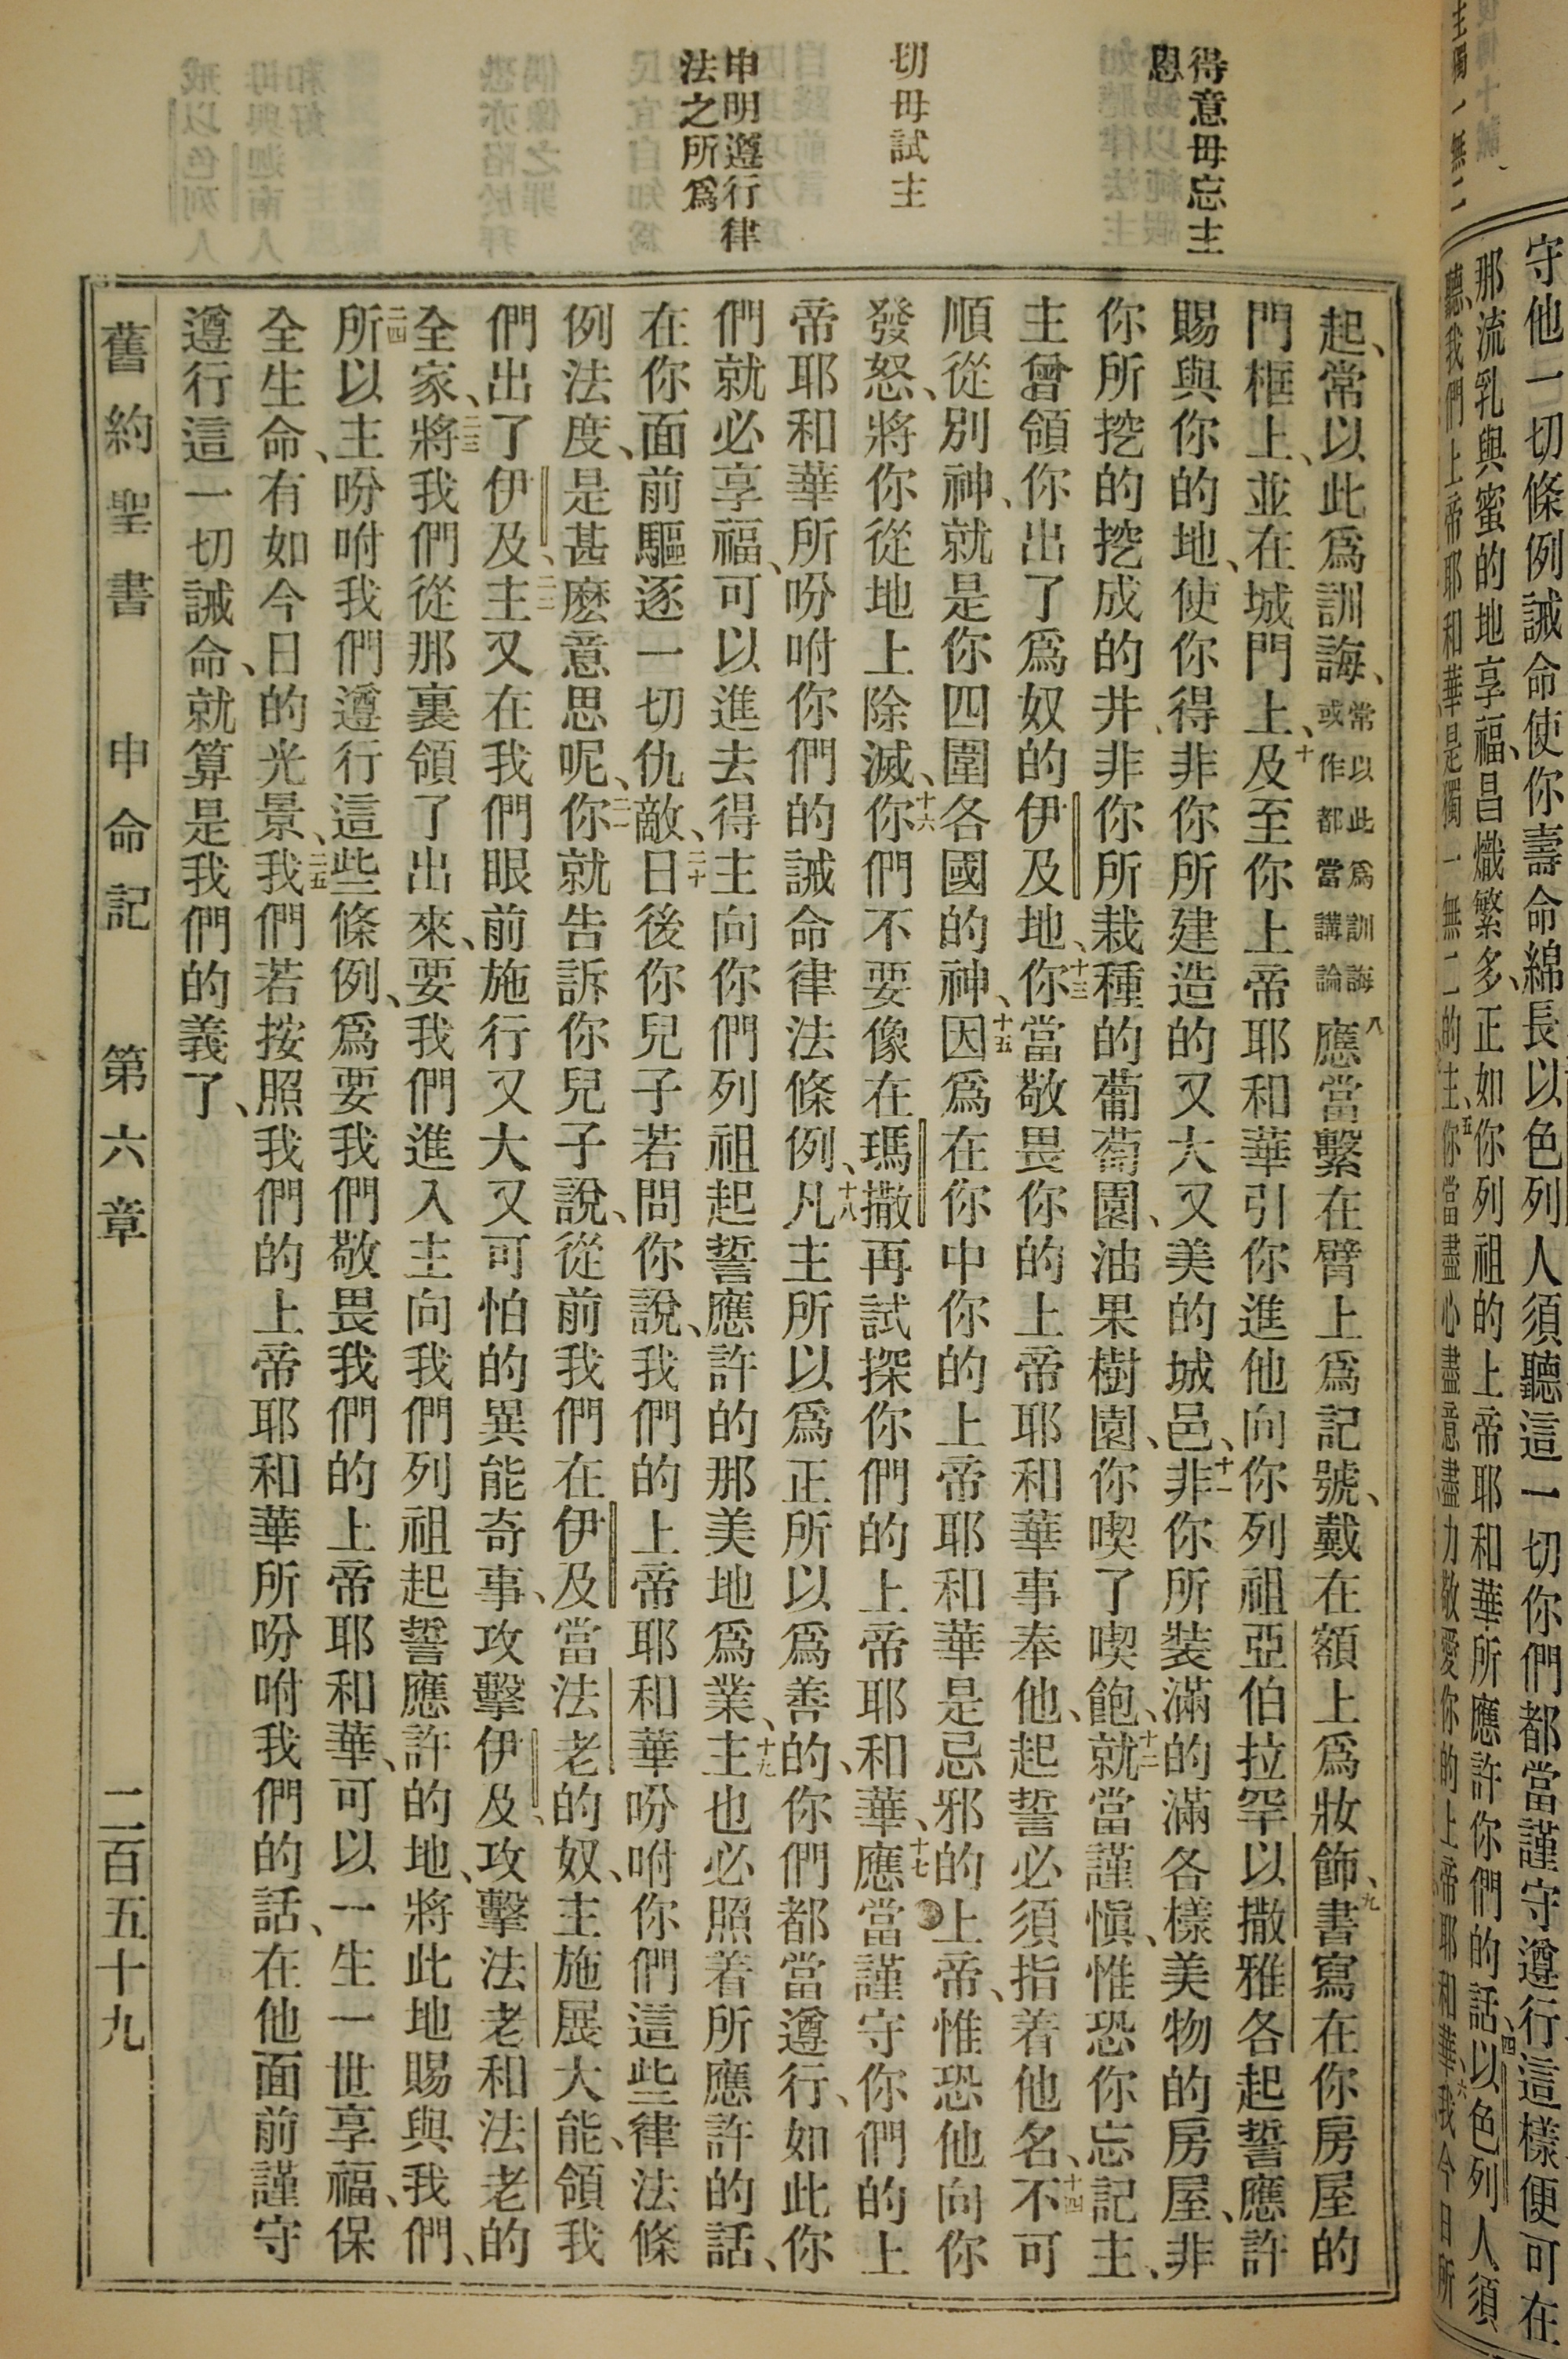 守他一切條例誡命使你壽命綿長以色列人須聽這一切你們都當謹守遵行這樣便可在
那流乳與蜜的地享福、昌熾繁多、正如你列祖的上帝耶和華所應許你們的話、四以色列人須
聽、我們上帝耶和華、是獨一無二的主、五你當盡心盡意盡力敬愛你的上帝耶和華、六我今日所
得意毋忘主
恩
切毋試主
申明遵行律
法之所爲
起、常以此爲訓誨、常以此爲訓誨或作都當講論八應當繫在臂上爲記號、戴在額上爲妝飾、九書寫在你房屋的
門框上、並在城門上、十及至你上帝耶和華引你進他向你列祖亞伯拉罕以撒雅各起誓應許
賜與你的地、使你得非你所建造的又大又美的城邑、十一非你所裝滿的滿各樣美物的房屋、非
你所挖的挖成的井、非你所栽種的葡萄園、油果樹園、你喫了喫飽、十二就當謹愼、惟恐你忘記主、
主曾領你出了爲奴的伊及地、十三你當敬畏你的上帝耶和華事奉他、起誓必須指着他名、十四不可
順從別神、就是你四圍各國的神、十五因爲在你中你的上帝耶和華是忌邪的上帝、惟恐他向你
發怒、將你從地上除滅、十六你們不要像在瑪撒再試探你們的上帝耶和華、十七應當謹守你們的上
帝耶和華所吩咐你們的誡命律法條例、十八凡主所以爲正所以爲善的、你們都當遵行、如此你
們就必享福、可以進去得主向你們列祖起誓應許的那美地爲業、十九主也必照着所應許的話、
在你面前驅逐一切仇敵、二十日後你兒子若問你說、我們的上帝耶和華吩咐你們這些律法條
例法度、是甚麽意思呢、二一你就告訴你兒子說、從前我們在伊及當法老的奴、主施展大能、領我
們出了伊及、二二主又在我們眼前施行又大又可怕的異能奇事、攻擊伊及、攻擊法老和法老的
全家、二三將我們從那裏領了出來、要我們進入主向我們列祖起誓應許的地、將此地賜與我們、
二四所以主吩咐我們遵行這些條例、爲要我們敬畏我們的上帝耶和華、可以一生一世享福、保
全生命、有如今日的光景、二五我們若按照我們的上帝耶和華所吩咐我們的話、在他面前謹守
遵行這一切誡命、就算是我們的義了、
舊約聖書　申命記　第六章　二百五十九